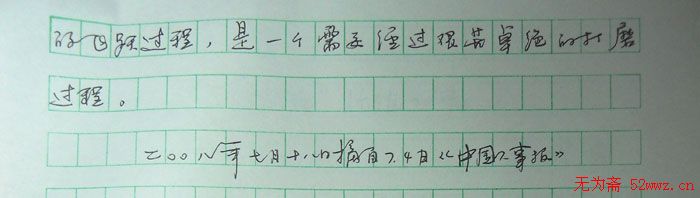 的飞跃过程，是一个需要经过艰苦卓绝的打磨
过程。
二〇〇八年七月十八日摘自7.4日《中国人事报》
无为斋 52wwz.cn